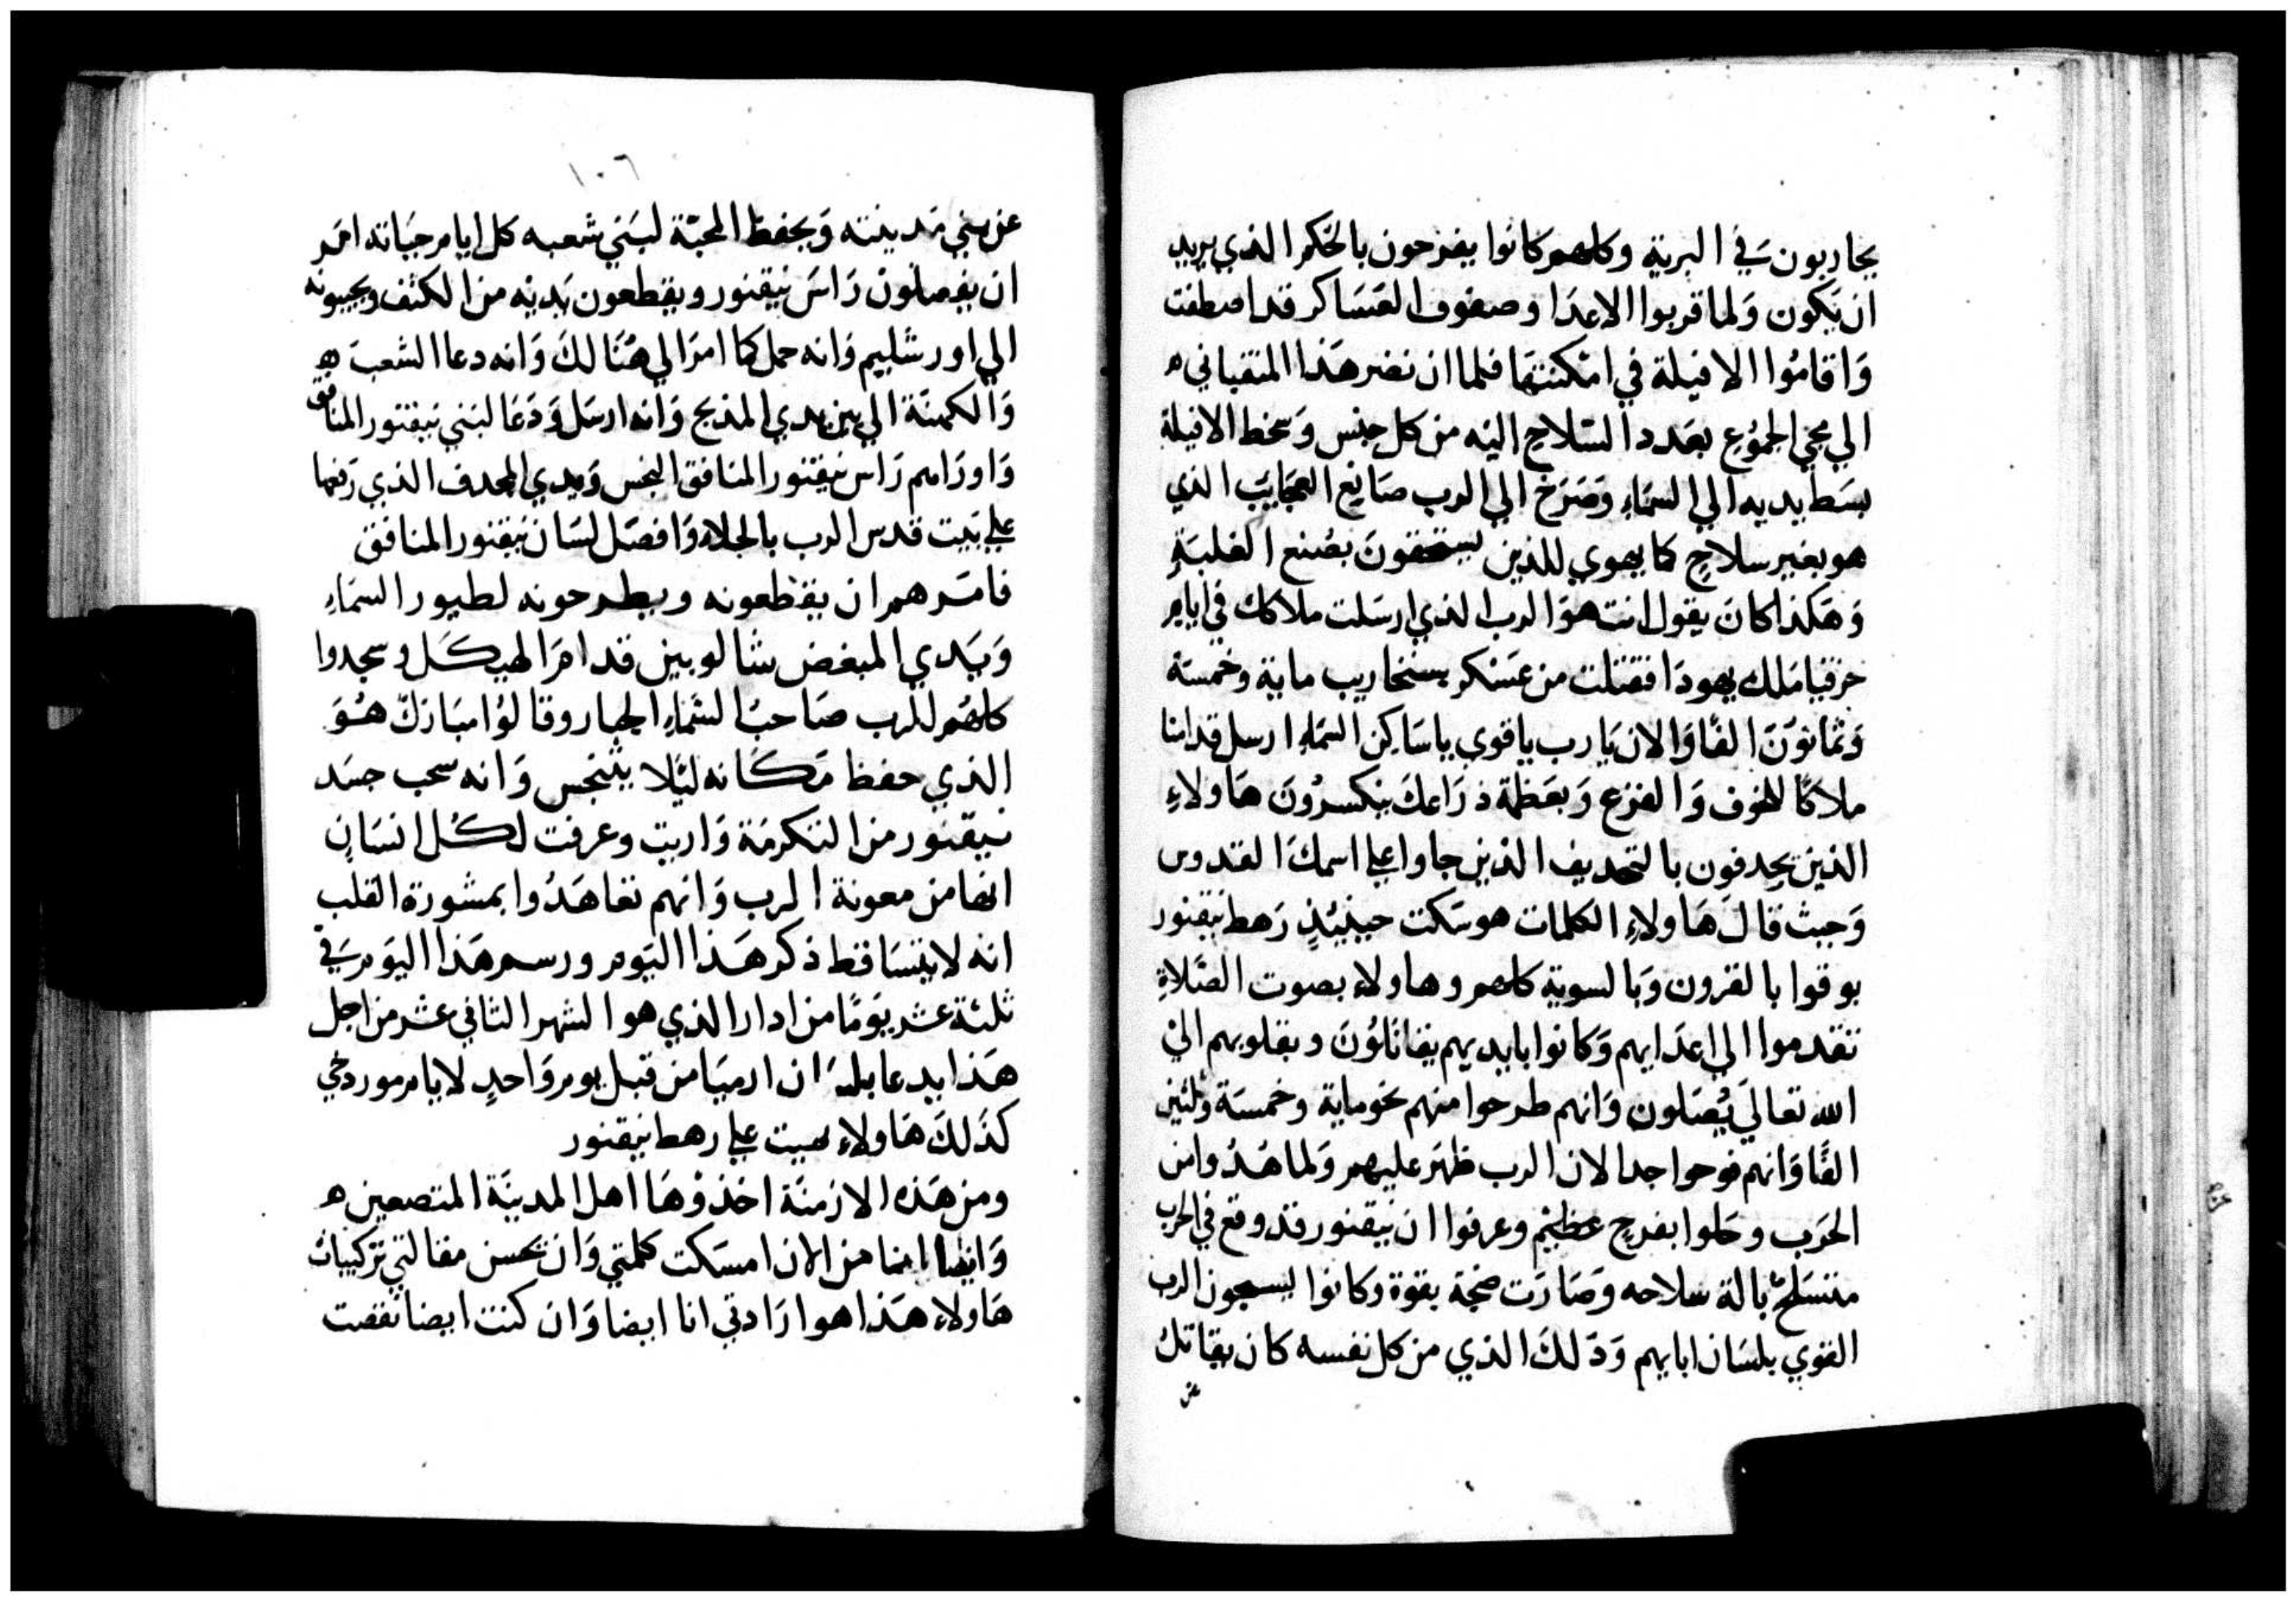 يحاربون في البرية وكلهم كانوا يفرحون بالحكم الذي يريد
ان يكون ولما قربوا الاعدا وصفوف العساكر قد اصطفت
واقاموا الافيلة في امكنتها فلما ان نضر هذا المتقياني
الي مجي الجموع بعدد السلاح اليه من كل جنس وسخط الافيلة
بسط يديه الي السماء وصرخ الي الرب صانع العجايب الذي
هو بغير سلاح كما يهوي للذين يستحقون بصنع الغلبة
وهكذا كان يقول انت هو الرب الذي ارسلت ملاكك في ايام
حزقيا ملك يهودا فقتلت من عسكر سنخاريب ماية وخمسة
وثمانون الفا والان يا رب يا قوي يا ساكن السماء ارسل قدامنا
ملاكا للخوف والفزع وبعظمة ذراعك ينكسرون هاولاء
الذين يجدفون بالتجديف الذين جاوا علي اسمك القدوس
وحيث قال هاولاء الكلمات هو سكت حينيذ رهط نيقنور
بوقوا بالقرون وبالسوية كلهم وهاولاء بصوت الصلاة
تقدموا الي اعدايهم وكانوا بايديهم يقاتلون وبقلوبهم الي
الله تعالي يصلون وانهم طرحوا منهم نحو ماية وخمسة وثلثين
الفا وانهم فرحوا جدا لان الرب ظهر عليهم ولما هدوا من
الحرب وحلوا بفرح عظيم وعرفوا ان نيقنور قد وقع في الحرب
متسلح بالة سلاحه وصارت ضجة بقوة وكانوا يسبحون الرب
القوي بلسان ابايهم وذلك الذي من كل نفسه كان يقاتل
عن
١٠٦
عن بني مدينته ويحفظ المحبة لبني شعبه كل ايام حياته امر
ان يفصلون راس نيقنور ويقطعون يديه من الكتف ويجيبونه
الي اورشليم وانه حمل كما امر الي هنالك وانه دعا الشعب
والكهنة الي بين يدي المذبح وانه ارسل ودعا لبني نيقنور المنافق
واوراهم راس نيقنور المنافق النجس ويدي المجدف الذي رفعها
علي بيت قدس الرب بالجلاء وافصل لسان نيقنور المنافق
فامرهم ان يقطعونه ويطرحونه لطيور السماء
ويدي المبغض شالوبين قدام الهيكل وسجدوا
كلهم للرب صاحب السماء الجبار وقالوا مبارك هو
الذي حفظ مكانه ليلا يتنجس وانه سحب جسد
نيقنور من التكرمة واريت وعرفت لكل انسان
انها من معونة الرب وانهم تعاهدوا بمشورة القلب
انه لا يتساقط ذكر هذا اليوم ورسم هذا اليوم في
ثلثة عشر يوما من ادار الذي هو الشهر الثاني عشر من اجل
هذا يدعا بلسان ارميا من قبل يوم واحد لايام موردخي
كذلك هاولاء هييت علي رهط نيقنور
ومن هذه الازمنة اخذوها اهل المدينة المتصعين
وايضا انا من الان امسكت كلمتي وان تحسن مقالتي تركيبات
هاولاء هذا هو ارادتي انا ايضا وان كنت ايضا نقصت